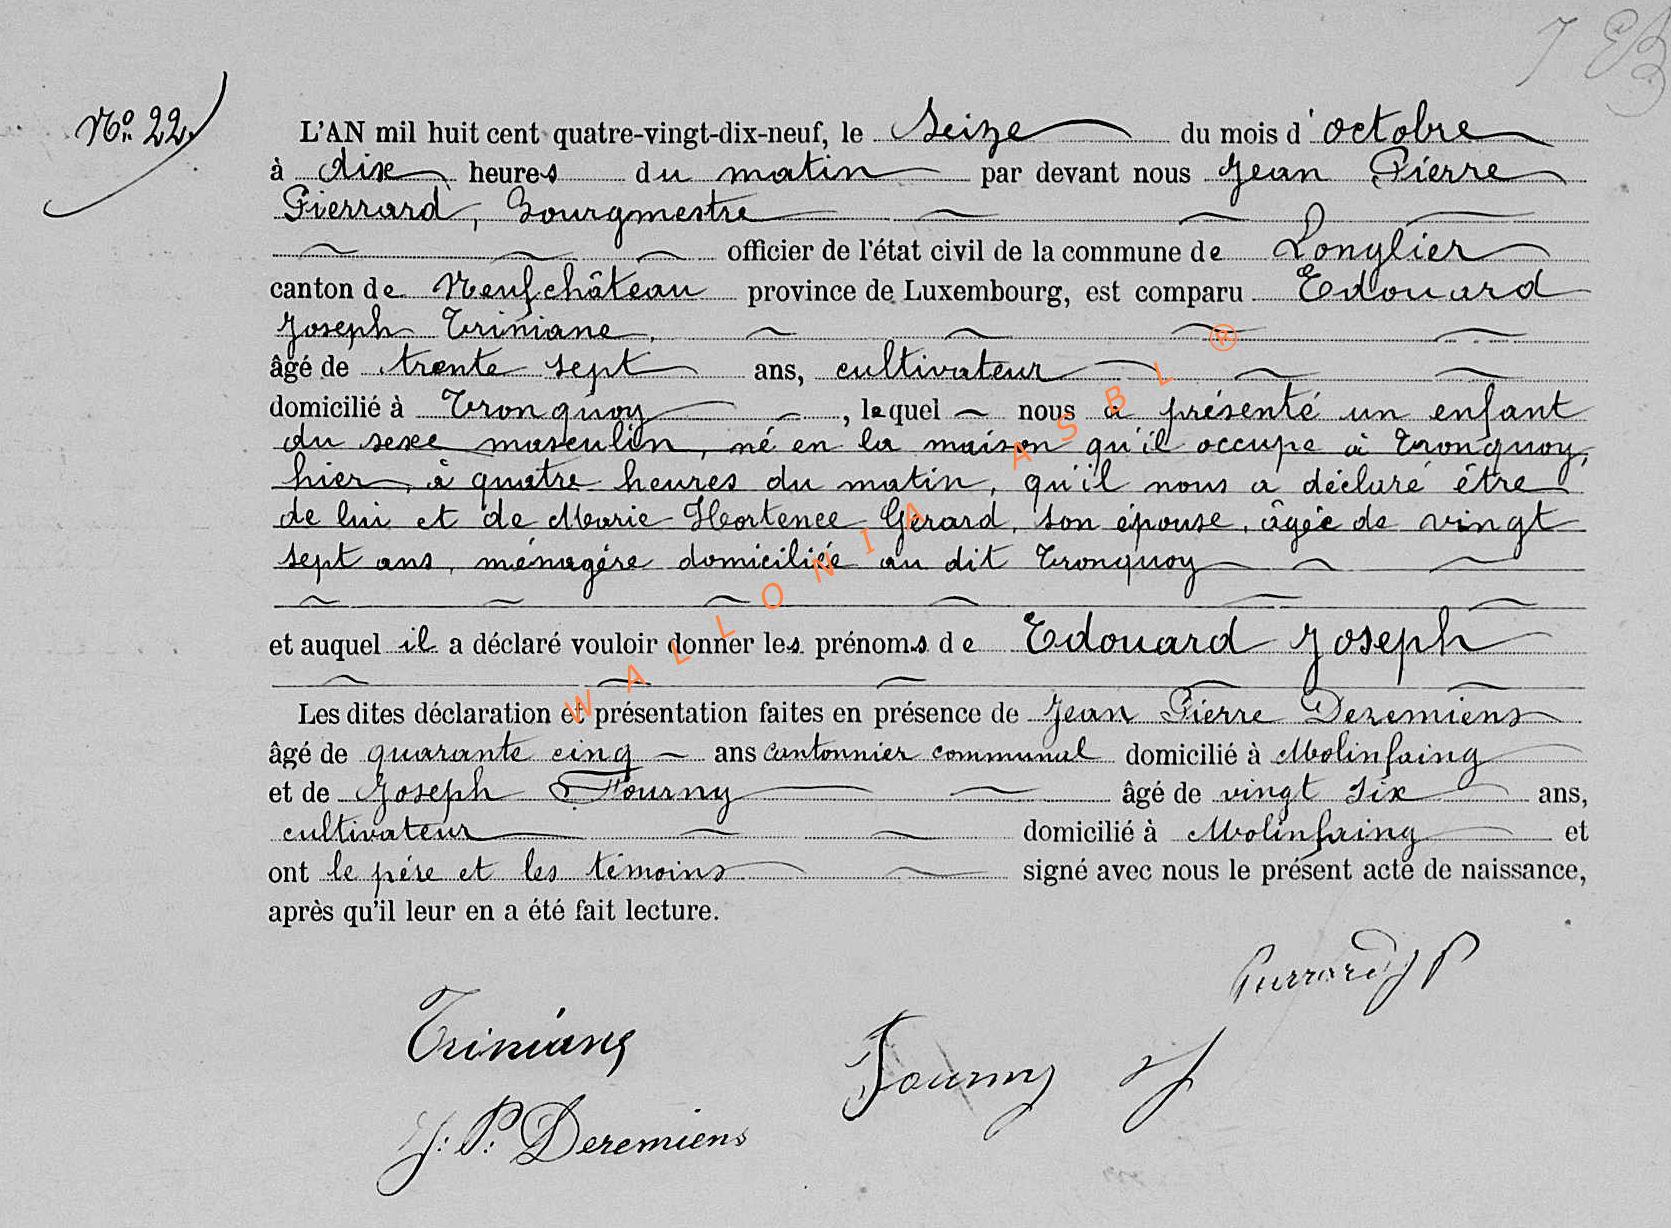 Nº 22
L'AN mil huit cent quatre-vingt-dix-neuf, le seize du mois d'octobre
à dix heures du matin par devant nous Jean Pierre
Pierrard, Bourgmestre
officier de l'état civil de la commune de Longlier
canton de Neufchâteau province de Luxembourg, est comparu Edouard
Joseph Triniane,
âgé de trente sept ans, cultivateur
domicilié à Tronquoy, lequel nous a présenté un enfant
du sexe masculin, né en la maison qu'il occupe à Tronquoy,
hier, à quatre heures du matin, qu'il nous a déclaré être
de lui et de Marie Hortence Gérard, son épouse, âgée de vingt
sept ans, ménagère domiciliée au dit Tronquoy
et auquel il a déclaré vouloir donner les prénoms de Edouard Joseph
Les dites déclaration et présentation faites en présence de Jean Pierre Deremiens
âgé de quarante cinq ans cantonnier communal domicilié à Molinfaing
et de Joseph Fourny âgé de vingt six ans,
cultivateur domicilié à Molinfaing et
ont le père et les témoins signé avec nous le présent acte de naissance,
après qu'il leur en a été fait lecture.
Pierrard J P
Triniane
Fourny J
J. P. Deremiens
WALLONIA ASBL ®